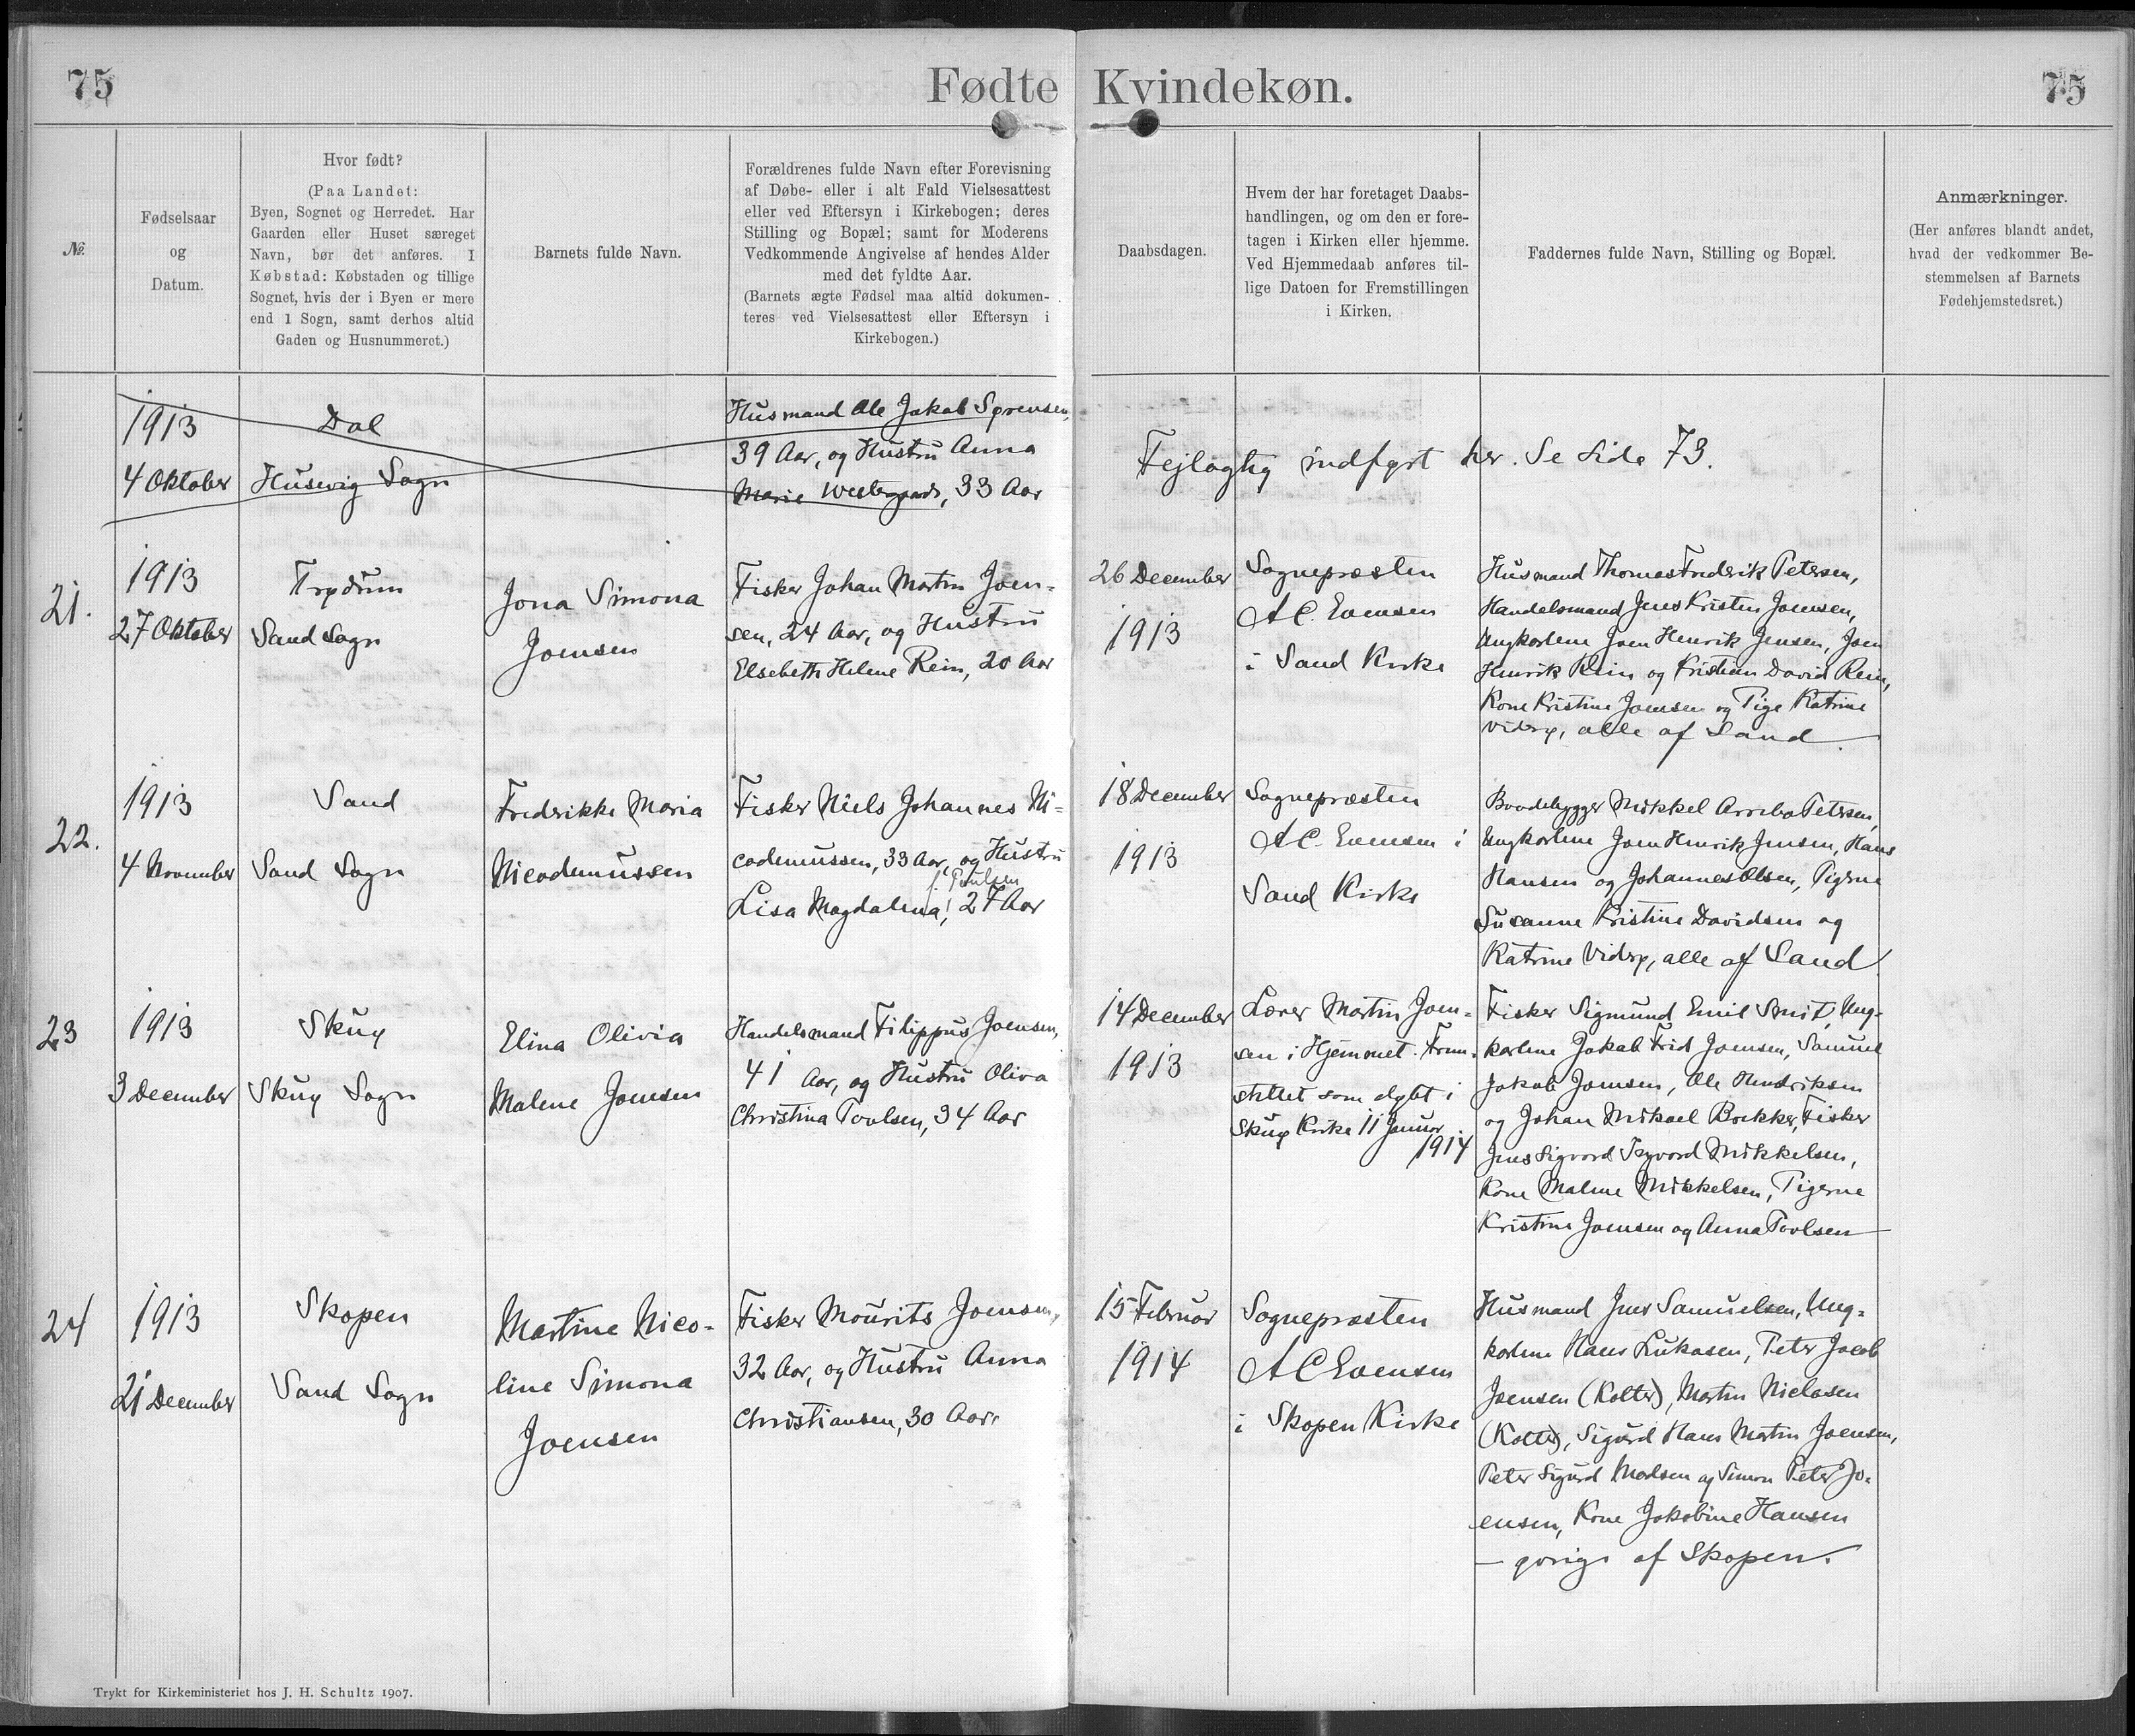 75
Fødte Kvindekøn.
75
№.
Fødselsaar
og
Datum.
Hvor født?
(Paa Landet:
Byen, Sognet og Herredet. Har
Gaarden eller Huset særeget
Navn, bør det anføres. I
Købstad: Købstaden og tillige
Sognet, hvis der i Byen er mere
end 1 Sogn, samt derhos altid
Gaden og Husnummeret.)
Barnets fulde Navn.
Forældrenes fulde Navn efter Forevisning
af Døbe- eller i alt Fald Vielsesattest
eller ved Eftersyn i Kirkebogen; deres
Stilling og Bopæl; samt for Moderens
Vedkommende Angivelse af hendes Alder
med det fyldte Aar.
(Barnets ægte Fødsel maa altid dokumen-
teres ved Vielsesattest eller Eftersyn i
Kirkebogen.)
Daabsdagen.
Hvem der har foretaget Daabs-
handlingen, og om den er fore-
tagen i Kirken eller hjemme.
Ved Hjemmedaab anføres til-
lige Datoen for Fremstillingen
i Kirken.
Faddernes fulde Navn, Stilling og Bopæl.
Anmærkninger.
(Her anføres blandt andet,
hvad der vedkommer Be-
stemmelsen af Barnets
Fødehjemstedsret.)
1913
4 Oktober
Dal
Husevig Sogn
Husmand Ole Jakob Sørensen,
39 Aar, og Hustru Anna
Marie Westergaard, 33 Aar
Fejlagtig indført her. Se Side 73.
21.
1913
27 Oktober
Trødum
Sand Sogn
Jona Simona
Joensen
Fisker Johan Martin Joen-
sen, 24 Aar, og Hustru
Elsebeth Helene Rein, 20 Aar
26 December
1913
Sognepræsten
A C. Evensen
i Sand Kirke
Husmand Thomas Frederik Petersen,
Handelsmand Jens Kristen Joensen,
Ungkarlene Joen Henrik Jensen, Joen
Henrik Rein og Kristian David Rein,
Kone Kristine Joensen og Pige Katrine
Viderø, alle af Sand.
22.
1913
4 November
Sand
Sand Sogn
Fredrikke Maria
Nicodemussen
Fisker Niels Johannes Ni-
codemussen, 33 Aar, og Hustru
f. Poulsen
Lisa Magdalena, 27 Aar
18 December
1913
Sognepræsten
A C. Evensen i
Sand Kirke
Baadebygger Mikkel Arrebo Petersen,
Ungkarlene Joen Henrik Jensen, Hans
Hansen og Johannes Olsen, Pigerne
Susanne Kristine Davidsen og
Katrine Viderø, alle af Sand
23
1913
3 December
Skuø
Skuø Sogn
Elina Olivia
Malene Joensen
Handelsmand Filippus Joensen,
41 Aar, og Hustru Oliva
Christina Poulsen, 34 Aar
14 December
1913
Lærer Martin Joen-
sen i Hjemmet. Frem-
stillet som døbt i
Skuø Kirke 11 Januar
1914
Fisker Sigmund Emil Smit, Ung-
karlene Jakob Frid Joensen, Samuel
Jakob Joensen, Ole Hendriksen
og Johan Mikael Bækker, Fisker
Jens Sigvard Mikkelsen,
Kone Malene Mikkelsen, Pigerne
Kristine Joensen og Anna Poulsen
24
1913
21 December
Skopen
Sand Sogn
Martine Nico-
line Simona
Joensen
Fisker Mourits Joensen,
32 Aar, og Hustru Anna
Christiansen, 30 Aar.
15 Februar
1914
Sognepræsten
A C Evensen
i Skopen Kirke
Husmand Jens Samuelsen, Ung-
karlene Hans Lukasen, Peter Jacob
Joensen (Kolter), Martin Niclasen
(Kolter), Sigurd Hans Martin Joensen,
Peter Sigurd Madsen og Simon Peter Jo-
ensen, Kone Jakobine Hansen
— øvrige af Skopen.
Trykt for Kirkeministeriet hos J. H. Schultz 1907.